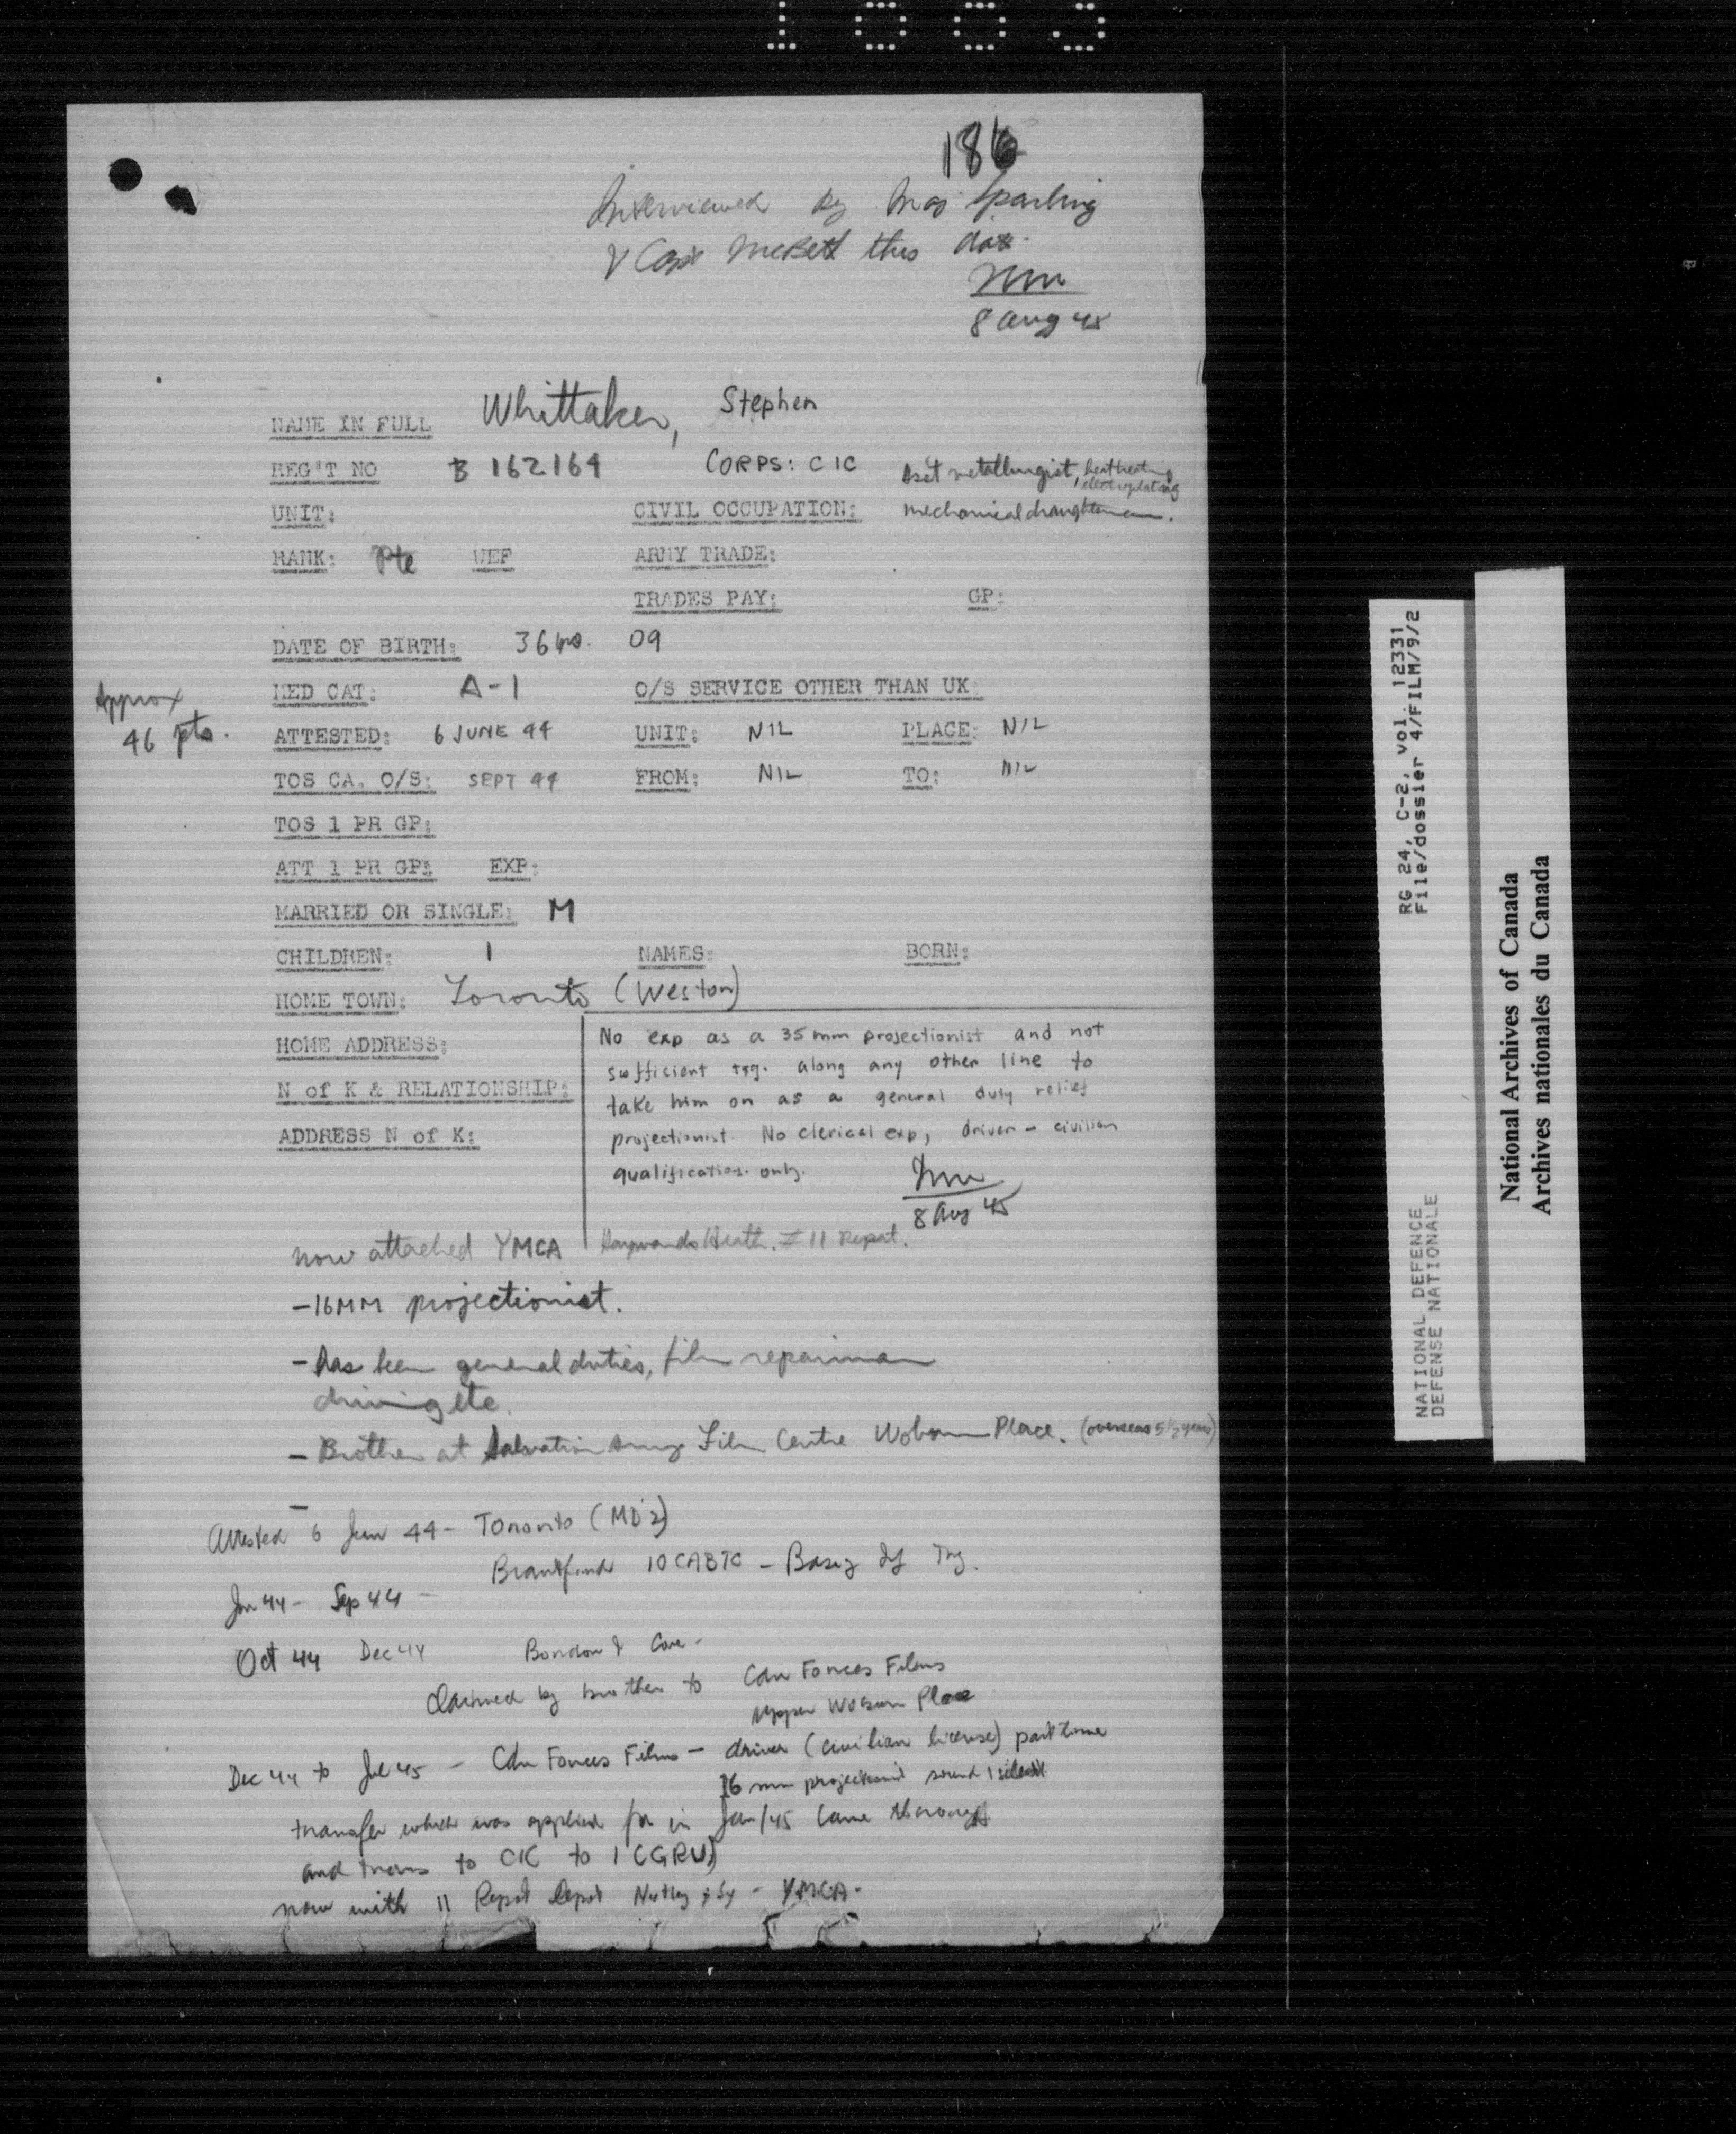 186
Interviewed by Maj Sparling
& Capt McBeth this date.
8 Aug 45
NAME IN FULL Whittaker, Stephen
REG'T NO B 162164 CORPS: CIC
Asst metallurgist, heat treating
electroplating
UNIT: CIVIL OCCUPATION: mechanical draughtsman.
RANK: Pte UEF ARMY TRADE:
TRADES PAY: GP:
DATE OF BIRTH: 36 yrs. 09
MED CAT: A-1 O/S SERVICE OTHER THAN UK:
Approx
46 pts.
ATTESTED: 6 JUNE 44 UNIT: NIL PLACE: NIL
TOS CA. O/S: SEPT 44 FROM: NIL TO: NIL
TOS 1 PR GP:
ATT 1 PR GP: EXP:
MARRIED OR SINGLE: M
CHILDREN: 1 NAMES: BORN:
HOME TOWN: Toronto (Weston)
HOME ADDRESS:
N of K & RELATIONSHIP:
ADDRESS N of K:
No exp as a 35 mm projectionist and not
sufficient trg. along any other line to
take him on as a general duty relief
projectionist. No clerical exp, driver - civilian
qualification only.
8 Aug 45
now attached YMCA Haywards Heath. #11 Repat.
- 16MM projectionist.
- has been general duties, film repairman
driving etc.
- Brother at Salvation Army Film Centre Woburn Place. (overseas 5 1/2 years)
-
Attested 6 Jun 44 - Toronto (MD 2)
Jun 44 - Sep 44 - Brantford 10 CABTC - Basic Inf Trg.
Oct 44 Dec 44 Bordon & Cove -
Claimed by brother to Cdn Forces Films
Upper Woburn Place
Dec 44 to Jul 45 - Cdn Forces Films - driver (civilian license) part time
16 mm projectionist sound / silent
transfer which was applied for in Jan/45 came through
and trans to CIC to 1 CGRU)
now with 11 Repat Depot Nutley, Sy - YMCA -
RG 24, C-2, vol. 12331
File/dossier 4/FILM/9/2
NATIONAL DEFENCE
DEFENSE NATIONALE
National Archives of Canada
Archives nationales du Canada